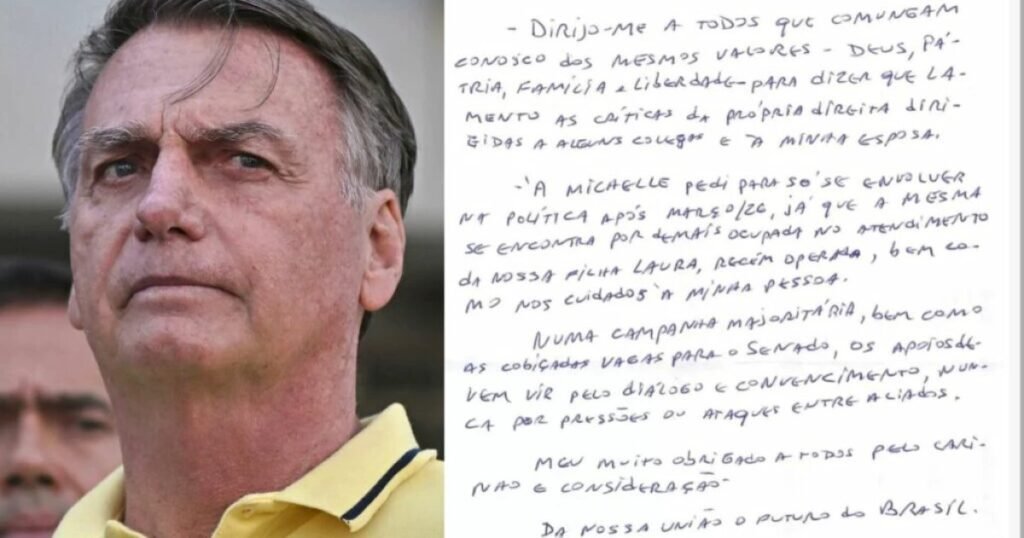 - DIRIJO-ME A TODOS QUE COMUNGAM
CONOSCO DOS MESMOS VALORES - DEUS, PÁ-
TRIA, FAMÍLIA E LIBERDADE - PARA DIZER QUE LA-
MENTO AS CRÍTICAS DA PRÓPRIA DIREITA DIRI-
GIDAS A ALGUNS COLEGAS E À MINHA ESPOSA.
- À MICHELLE PEDI PARA SÓ SE ENVOLVER
NA POLÍTICA APÓS MARÇO/26, JÁ QUE A MESMA
SE ENCONTRA POR DEMAIS OCUPADA NO ATENDIMENTO
DA NOSSA FILHA LAURA, RECÉM OPERADA, BEM CO-
MO NOS CUIDADOS À MINHA PESSOA.
NUMA CAMPANHA MAJORITÁRIA, BEM COMO
AS COBIÇADAS VAGAS PARA O SENADO, OS APOIOS DE-
VEM VIR PELO DIÁLOGO E CONVENCIMENTO, NUN-
CA POR PRESSÕES OU ATAQUES ENTRE ALIADOS.
MEU MUITO OBRIGADO A TODOS PELO CARI-
NHO E CONSIDERAÇÃO
DA NOSSA UNIÃO O FUTURO DO BRASIL.